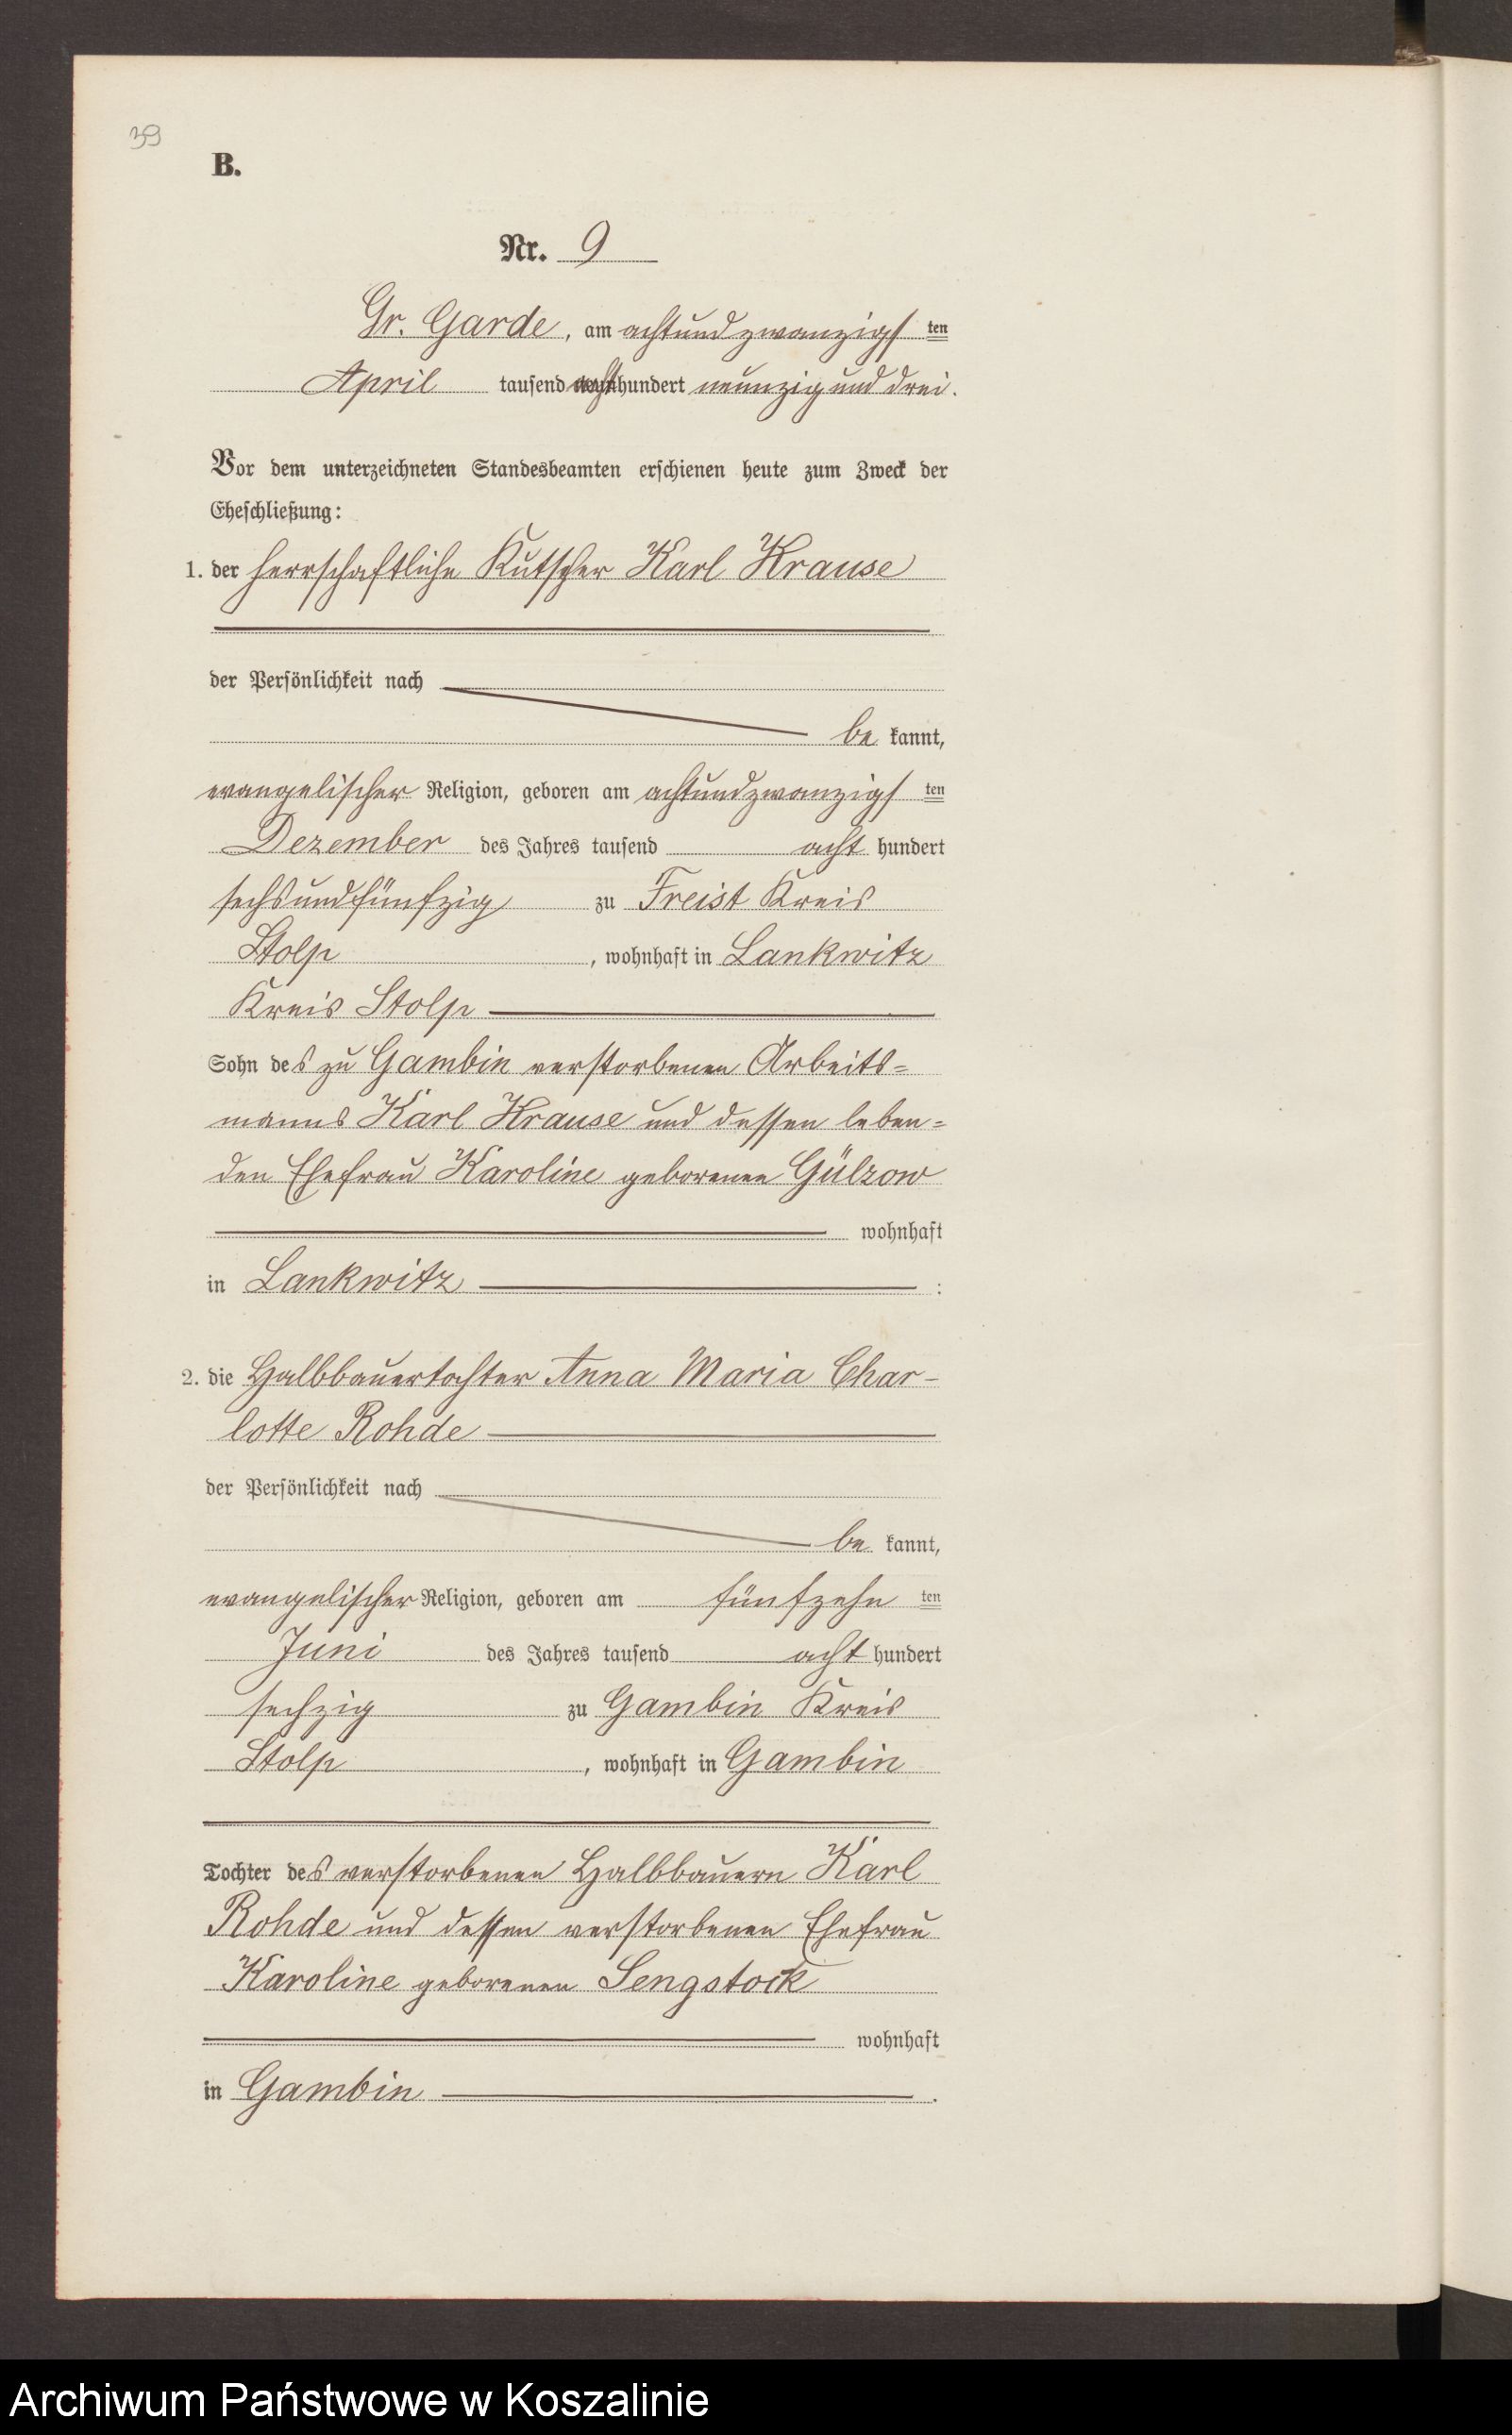 39
B.
Nr. 9
Gr. Garde, am achtundzwanzigsten
April tausend achthundert neunzig und drei.
Vor dem unterzeichneten Standesbeamten erschienen heute zum Zweck der
Eheschließung:
1. der herrschaftliche Kutscher Karl Krause
der Persönlichkeit nach
be kannt,
evangelischer Religion, geboren am achtundzwanzigsten
Dezember des Jahres tausend acht hundert
sechsundfünfzig zu Freist Kreis
Stolp, wohnhaft in Lankwitz
Kreis Stolp
Sohn des zu Gambin verstorbenen Arbeits=
manns Karl Krause und dessen leben=
den Ehefrau Karoline geborenen Gülzow
wohnhaft
in Lankwitz :
2. die Halbbauertochter Anna Maria Char-
lotte Rohde
der Persönlichkeit nach
be kannt,
evangelischer Religion, geboren am fünfzehn ten
Juni des Jahres tausend acht hundert
sechzig zu Gambin Kreis
Stolp, wohnhaft in Gambin
Tochter des verstorbenen Halbbauern Karl
Rohde und dessen verstorbenen Ehefrau
Karoline geborenen Sengstock
wohnhaft
in Gambin .
Archiwum Państwowe w Koszalinie